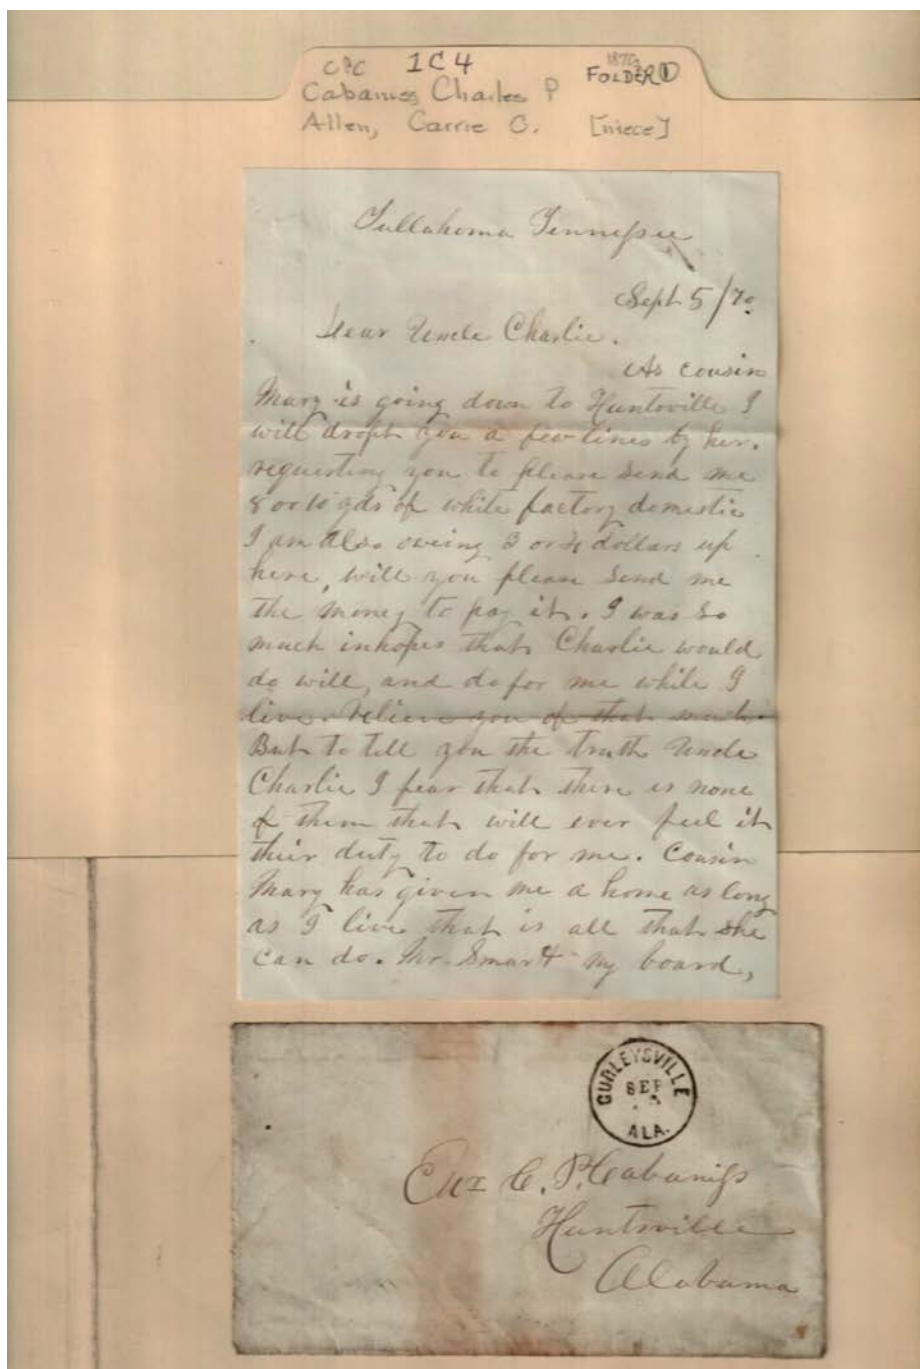 CPC 1C4 1870s
FOLDER ①
Cabaniss Charles P
Allen, Carrie C. [niece]
Tullahoma Tennessee
Sept 5/70
Dear Uncle Charlie.
As cousin
Mary is going down to Huntsville I
will dropt you a few lines by her.
requesting you to please send me
8 or 10 yds of white factory domestic
I am also oweing 3 or 4 dollars up
here, will you please send me
the money to pay it. I was so
much inhopes that Charlie would
do will, and do for me while I
live. relieve you of that much.
But to tell you the truth Uncle
Charlie I fear that there is none
of them that will ever feel it
their duty to do for me. Cousin
Mary has given me a home as long
as I live that is all that she
can do. Mr. Smartt my board,
GURLEYSVILLE
SEP
ALA.
C. P. Cabaniss
Huntsville
Alabama